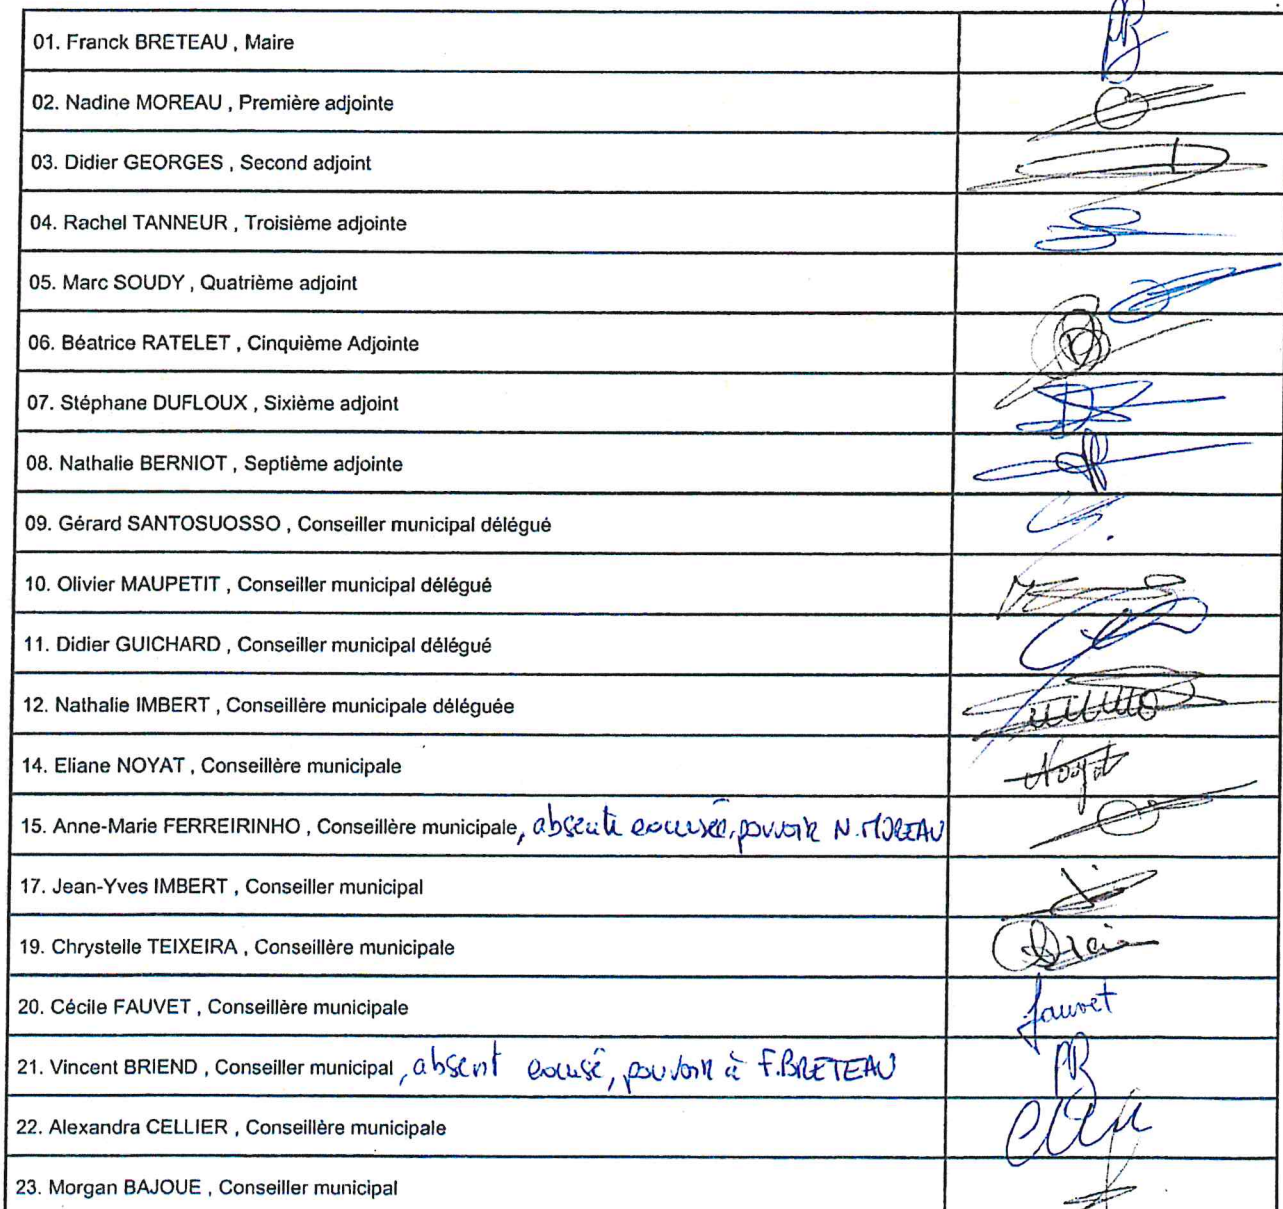 01. Franck BRETEAU , Maire
02. Nadine MOREAU , Première adjointe
03. Didier GEORGES , Second adjoint
04. Rachel TANNEUR , Troisième adjointe
05. Marc SOUDY , Quatrième adjoint
06. Béatrice RATELET , Cinquième Adjointe
07. Stéphane DUFLOUX , Sixième adjoint
08. Nathalie BERNIOT , Septième adjointe
09. Gérard SANTOSUOSSO , Conseiller municipal délégué
10. Olivier MAUPETIT , Conseiller municipal délégué
11. Didier GUICHARD , Conseiller municipal délégué
12. Nathalie IMBERT , Conseillère municipale déléguée
14. Eliane NOYAT , Conseillère municipale Noyat
15. Anne-Marie FERREIRINHO , Conseillère municipale, absente excusée, pouvoir N. MOREAU
17. Jean-Yves IMBERT , Conseiller municipal
19. Chrystelle TEIXEIRA , Conseillère municipale
20. Cécile FAUVET , Conseillère municipale fauvet
21. Vincent BRIEND , Conseiller municipal, absent excusé, pouvoir à F. BRETEAU
22. Alexandra CELLIER , Conseillère municipale
23. Morgan BAJOUE , Conseiller municipal